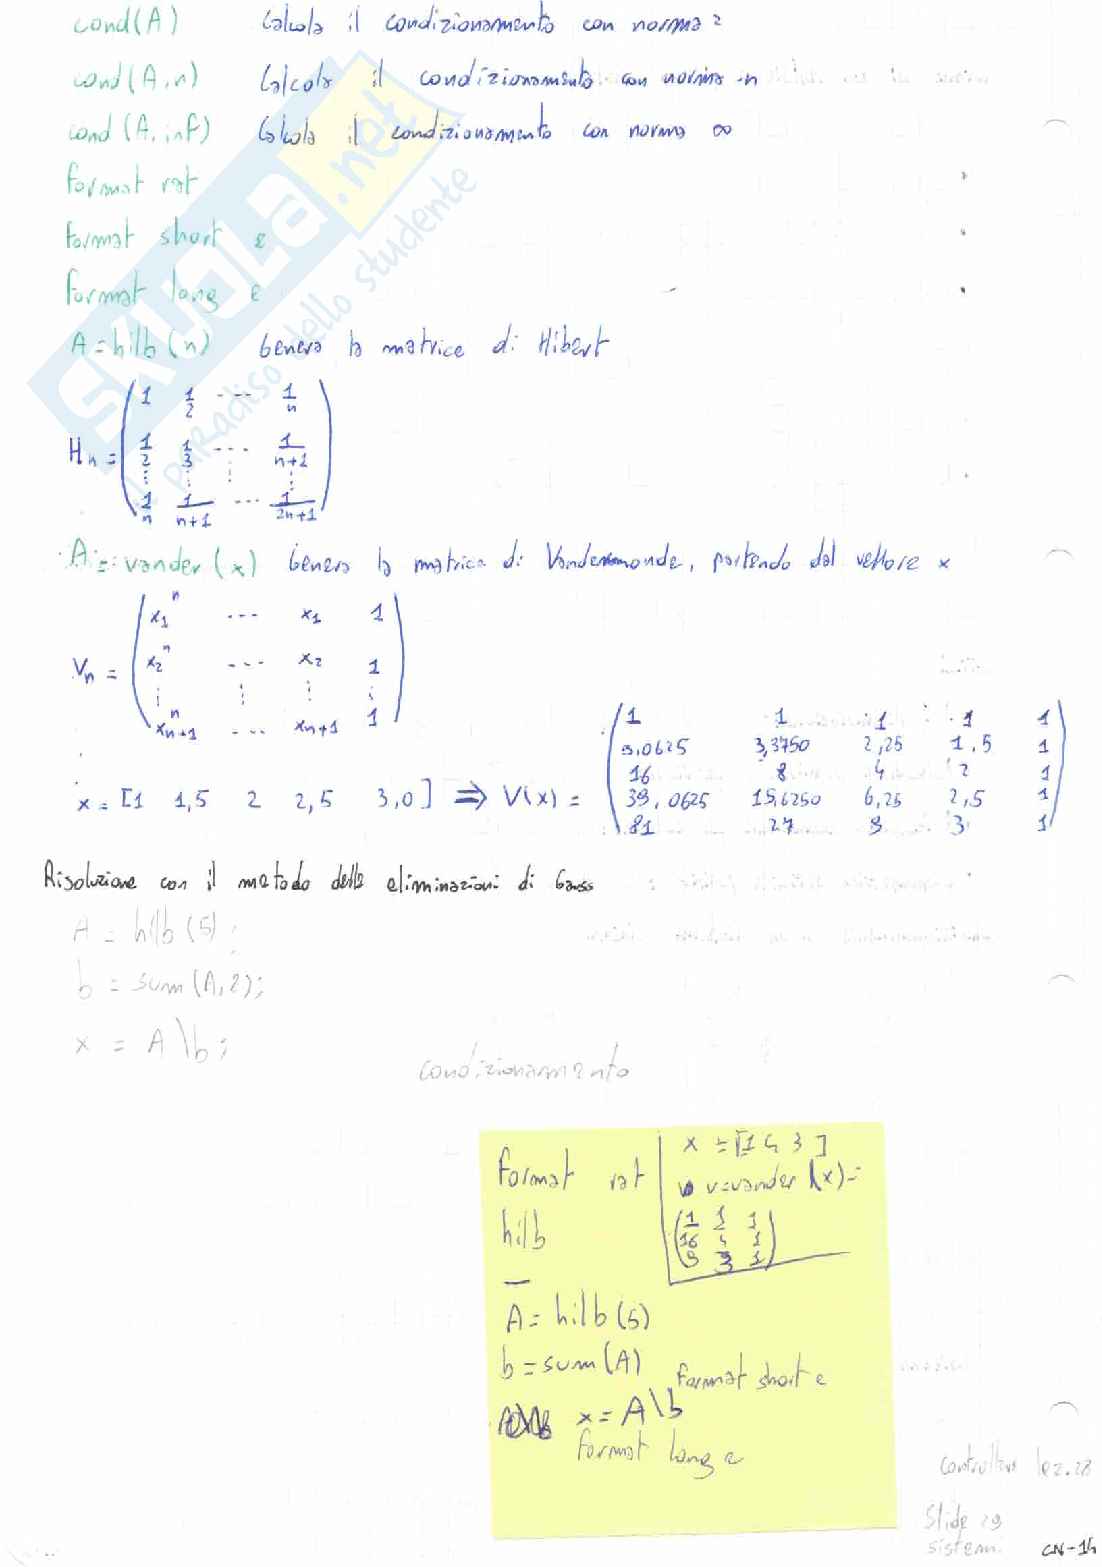 cond(A) Calcola il condizionamento con norma 2
cond(A,n) Calcola il condizionamento con norma n
cond(A,inf) Calcola il condizionamento con norma ∞
format rat
format short e
format long e
A=hilb(n) Genera la matrice di Hibert
1 1/2 --- 1/n
Hn= 1/2 1/3 --- 1/n+1
⋮ ⋮ ⋮ ⋮
1/n 1/n+1 --- 1/2n+1
A=vander(x) Genera la matrice di Vandermonde, partendo dal vettore x
x1^n --- x1 1
Vn = x2^n --- x2 1
⋮ ⋮ ⋮ ⋮
xn+1^n --- xn+1 1
x = [1 1,5 2 2,5 3,0] ⇒ V(x) =
1 1 1 1 1
5,0625 3,3750 2,25 1,5 1
16 8 4 2 1
39,0625 15,6250 6,25 2,5 1
81 27 9 3 1
Risoluzione con il metodo delle eliminazioni di Gauss
A = hilb(5);
b = sum(A,2);
x = A\b;
condizionamento
format rat
hilb
x = [1 4 3]
v=vander(x)=
1 1 1
16 4 1
9 3 1
A=hilb(5)
b=sum(A) format short e
x=A\b
format long e
controllare lez.28
Slide 29
sistem.
CN-14
SKUOLA.net
il paradiso dello studente